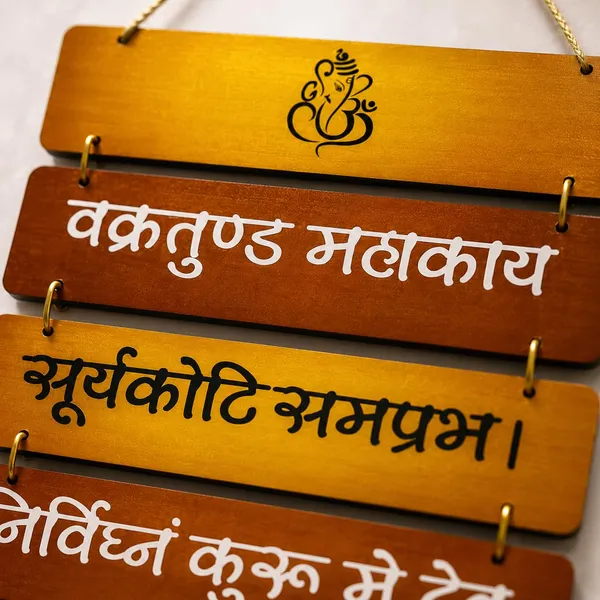 वक्रतुण्ड महाकाय
सूर्यकोटि समप्रभ।
निर्विघ्नं कुरू मे देव